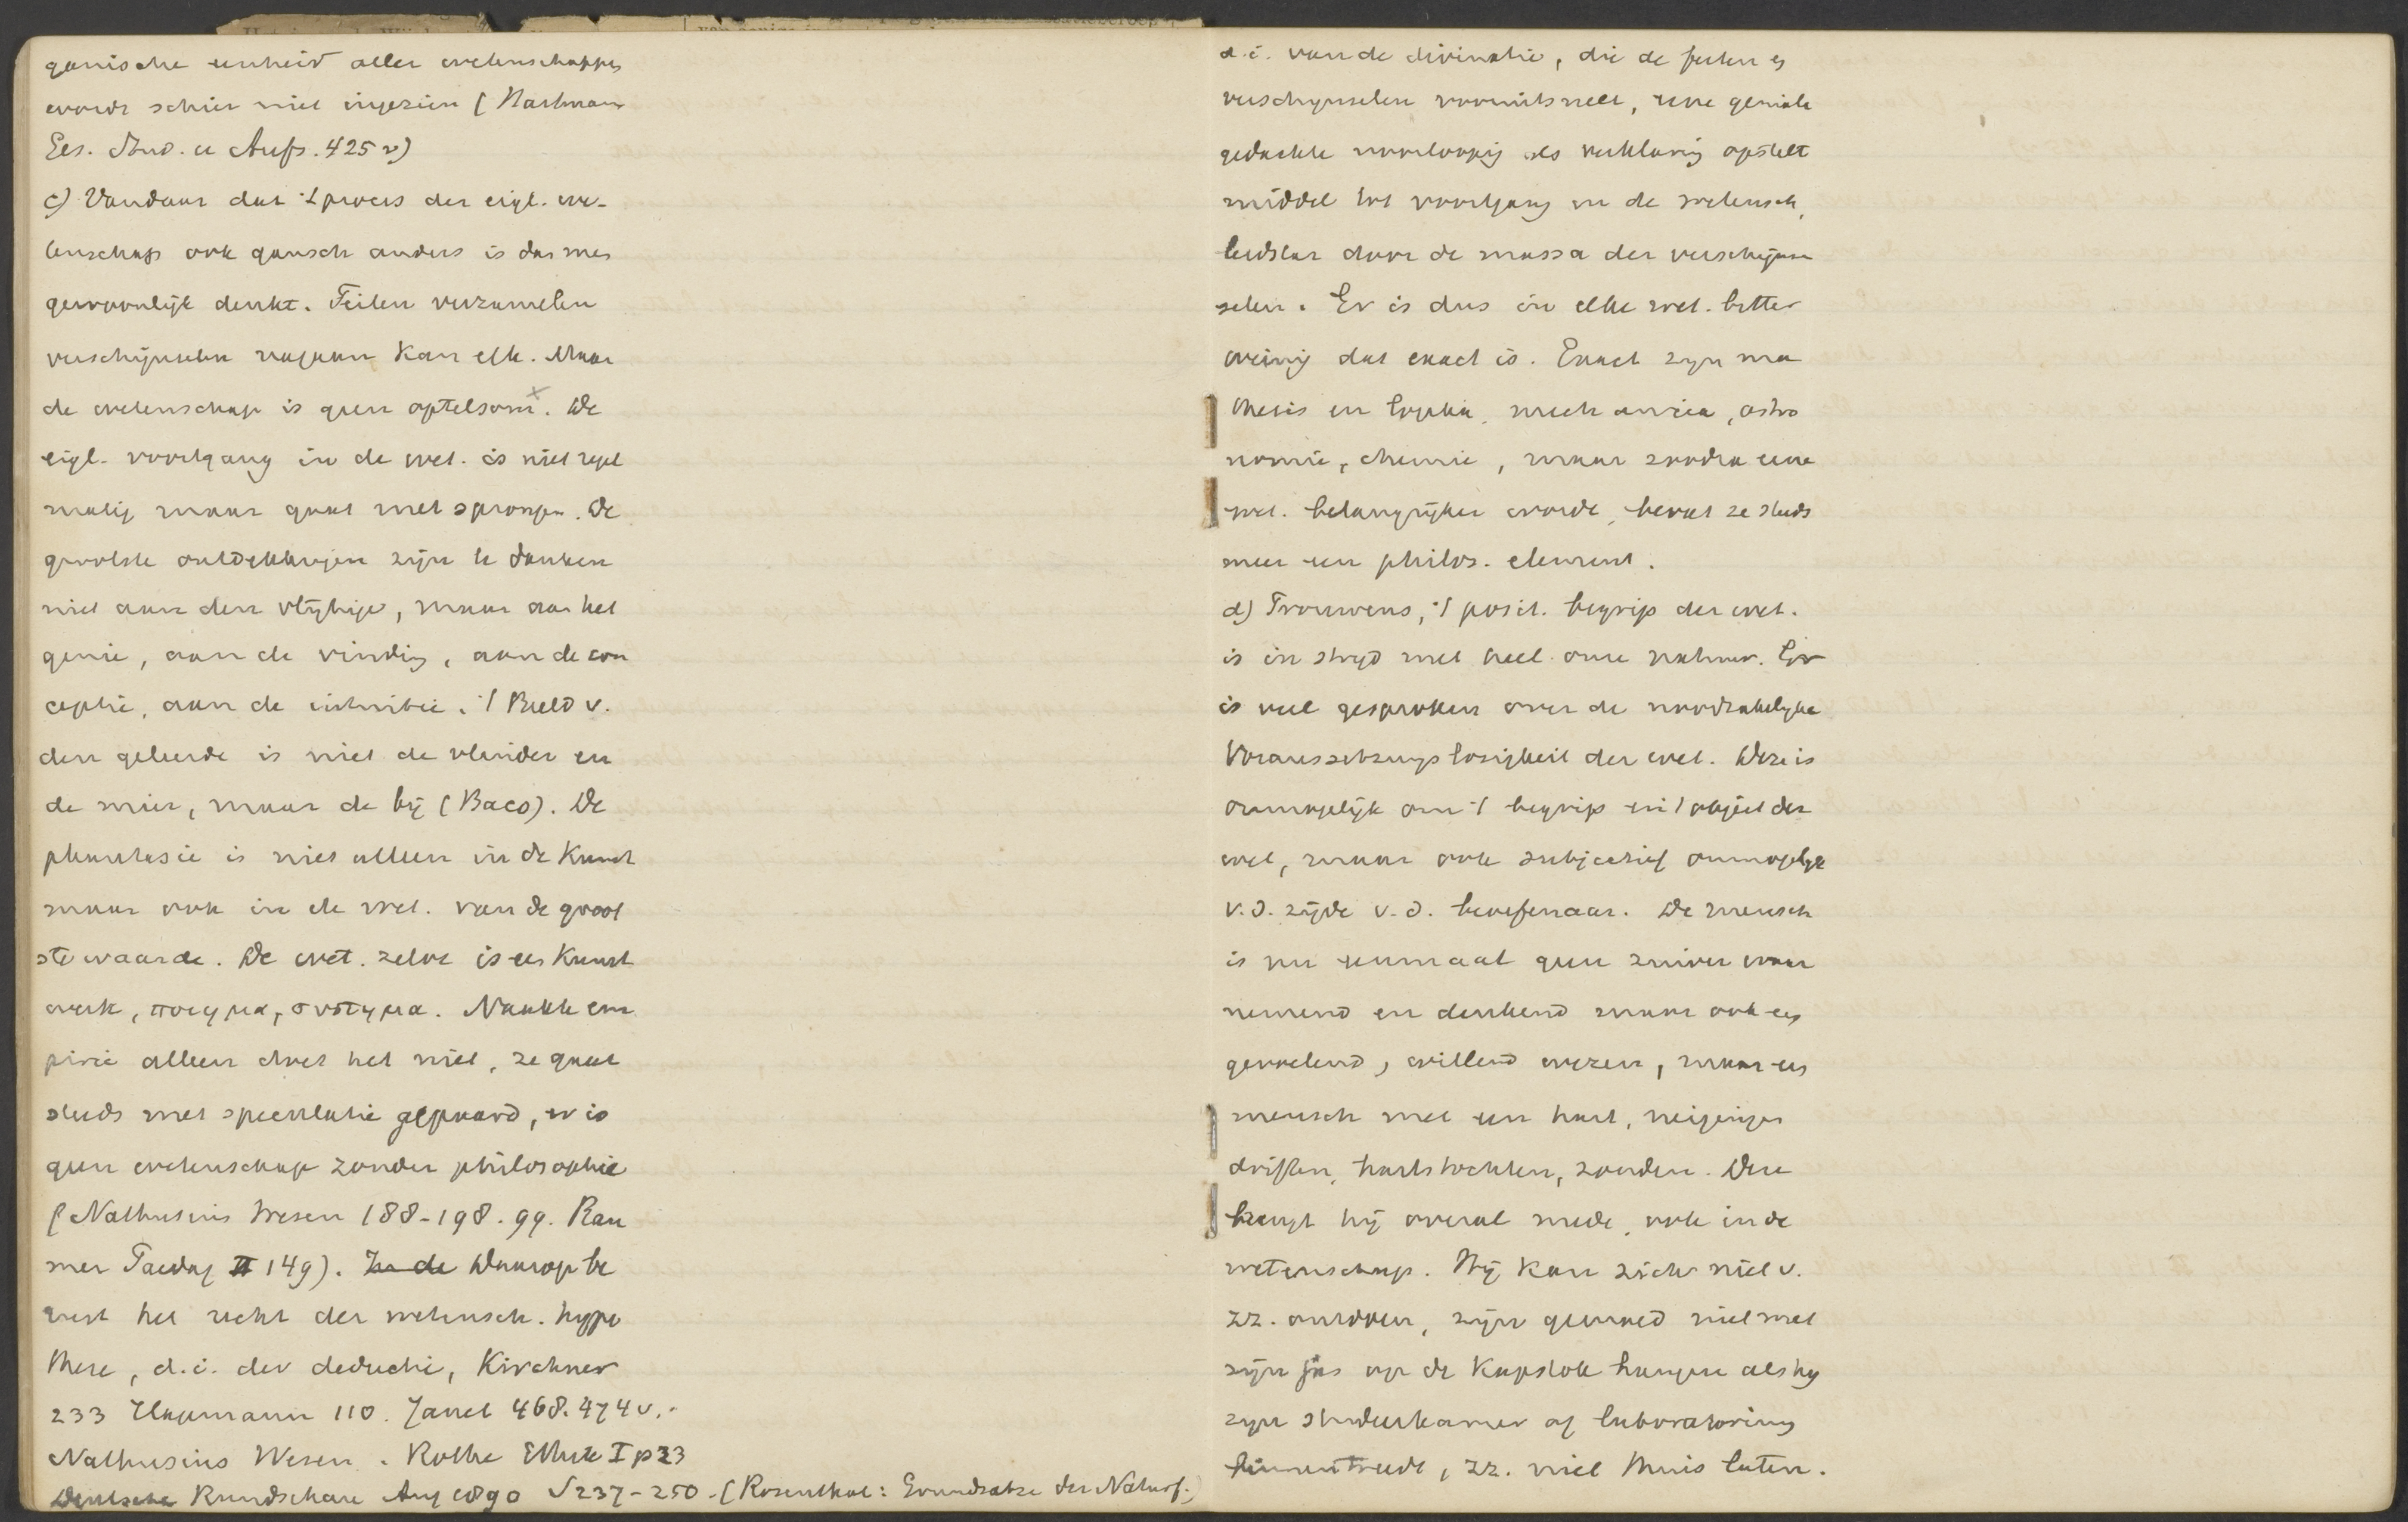 ganische eenheid aller wetenschappen
wordt schier niet ingezien (Hartmann
Ges. Stud. u Aufs. 425 v)
c) Vandaar dat 't proces der eigl. we-
tenschap ook gansch anders is dan men
gewoonlijk denkt. Feiten verzamelen
verschijnselen nagaan kan elk. Maar
de wetenschap is geen optelsom x. De
eigl. voortgang in de wet. is niet regel
matig maar gaat met sprongen. De
grootste ontdekkingen zijn te danken
niet aan den vlijtige, maar aan het
genie, aan de vinding, aan de con
ceptie, aan de intuitie. 't Beeld v.
den geleerde is niet de vlinder en
de mier, maar de bij (Baco). De
phantasie is niet alleen in de Kunst
maar ook in de wet. van de groot
ste waarde. De wet. zelve is een Kunst
werk, ποιημα, συστημα. Naakte em
pirie alleen doet het niet, ze gaat
steeds met speculatie gepaard, er is
geen wetenschap zonder philosophie
(Nathusius Wesen 188-198. 99. Rau
mer Paedag II 149). In de Daarop be
rust het recht der wetensch. hypo
these, d.i. der deductie, Kirchner
233 Hagemann 110. Janet 468. 474 v.
Nathusius Wesen. Rothe Ethik I p 23
Deutsche Rundschau Aug 1890 S 237-250. (Rosenthal: Grundsätze der Naturf.)
d.i. van de divinatie, die de feiten en
verschijnselen vooruitsnelt, eene geniale
gedachte voorloopig als verklaring opstelt
middel tot voortgang in de wetensch,
leidstar door de massa der verschijn
selen. Er is dus in elke wet. bitter
weinig dat exact is. Exact zijn ma
thesis en logika, mechanica, astro
nomie, chemie, maar zoodra eene
wet. belangrijker wordt, bevat ze steeds
meer een philos. element.
d) Trouwens, 't posit. begrip der wet.
is in strijd met heel onze natuur. Er
is veel gesproken over de noodzakelijke
Voraussetzungslosigkeit der wet. Deze is
onmogelijk om 't begrip en 't object der
wet, maar ook subjectief onmogelijk
v.d. zijde v.d. beoefenaar. De mensch
is nu eenmaal geen zuiver waar
nemend en denkend maar ook een
gevoelend, willend wezen, maar een
mensch met een hart, neigingen
driften, hartstochten, zonden. Deze
brengt hij overal mede, ook in de
wetenschap. Hij kan zich niet v.
zz. ontdoen, zijn gemoed niet met
zijn jas op de kapstok hangen als hij
zijn studeerkamer of laboratorium
binnentreedt, zz. niet thuis laten.